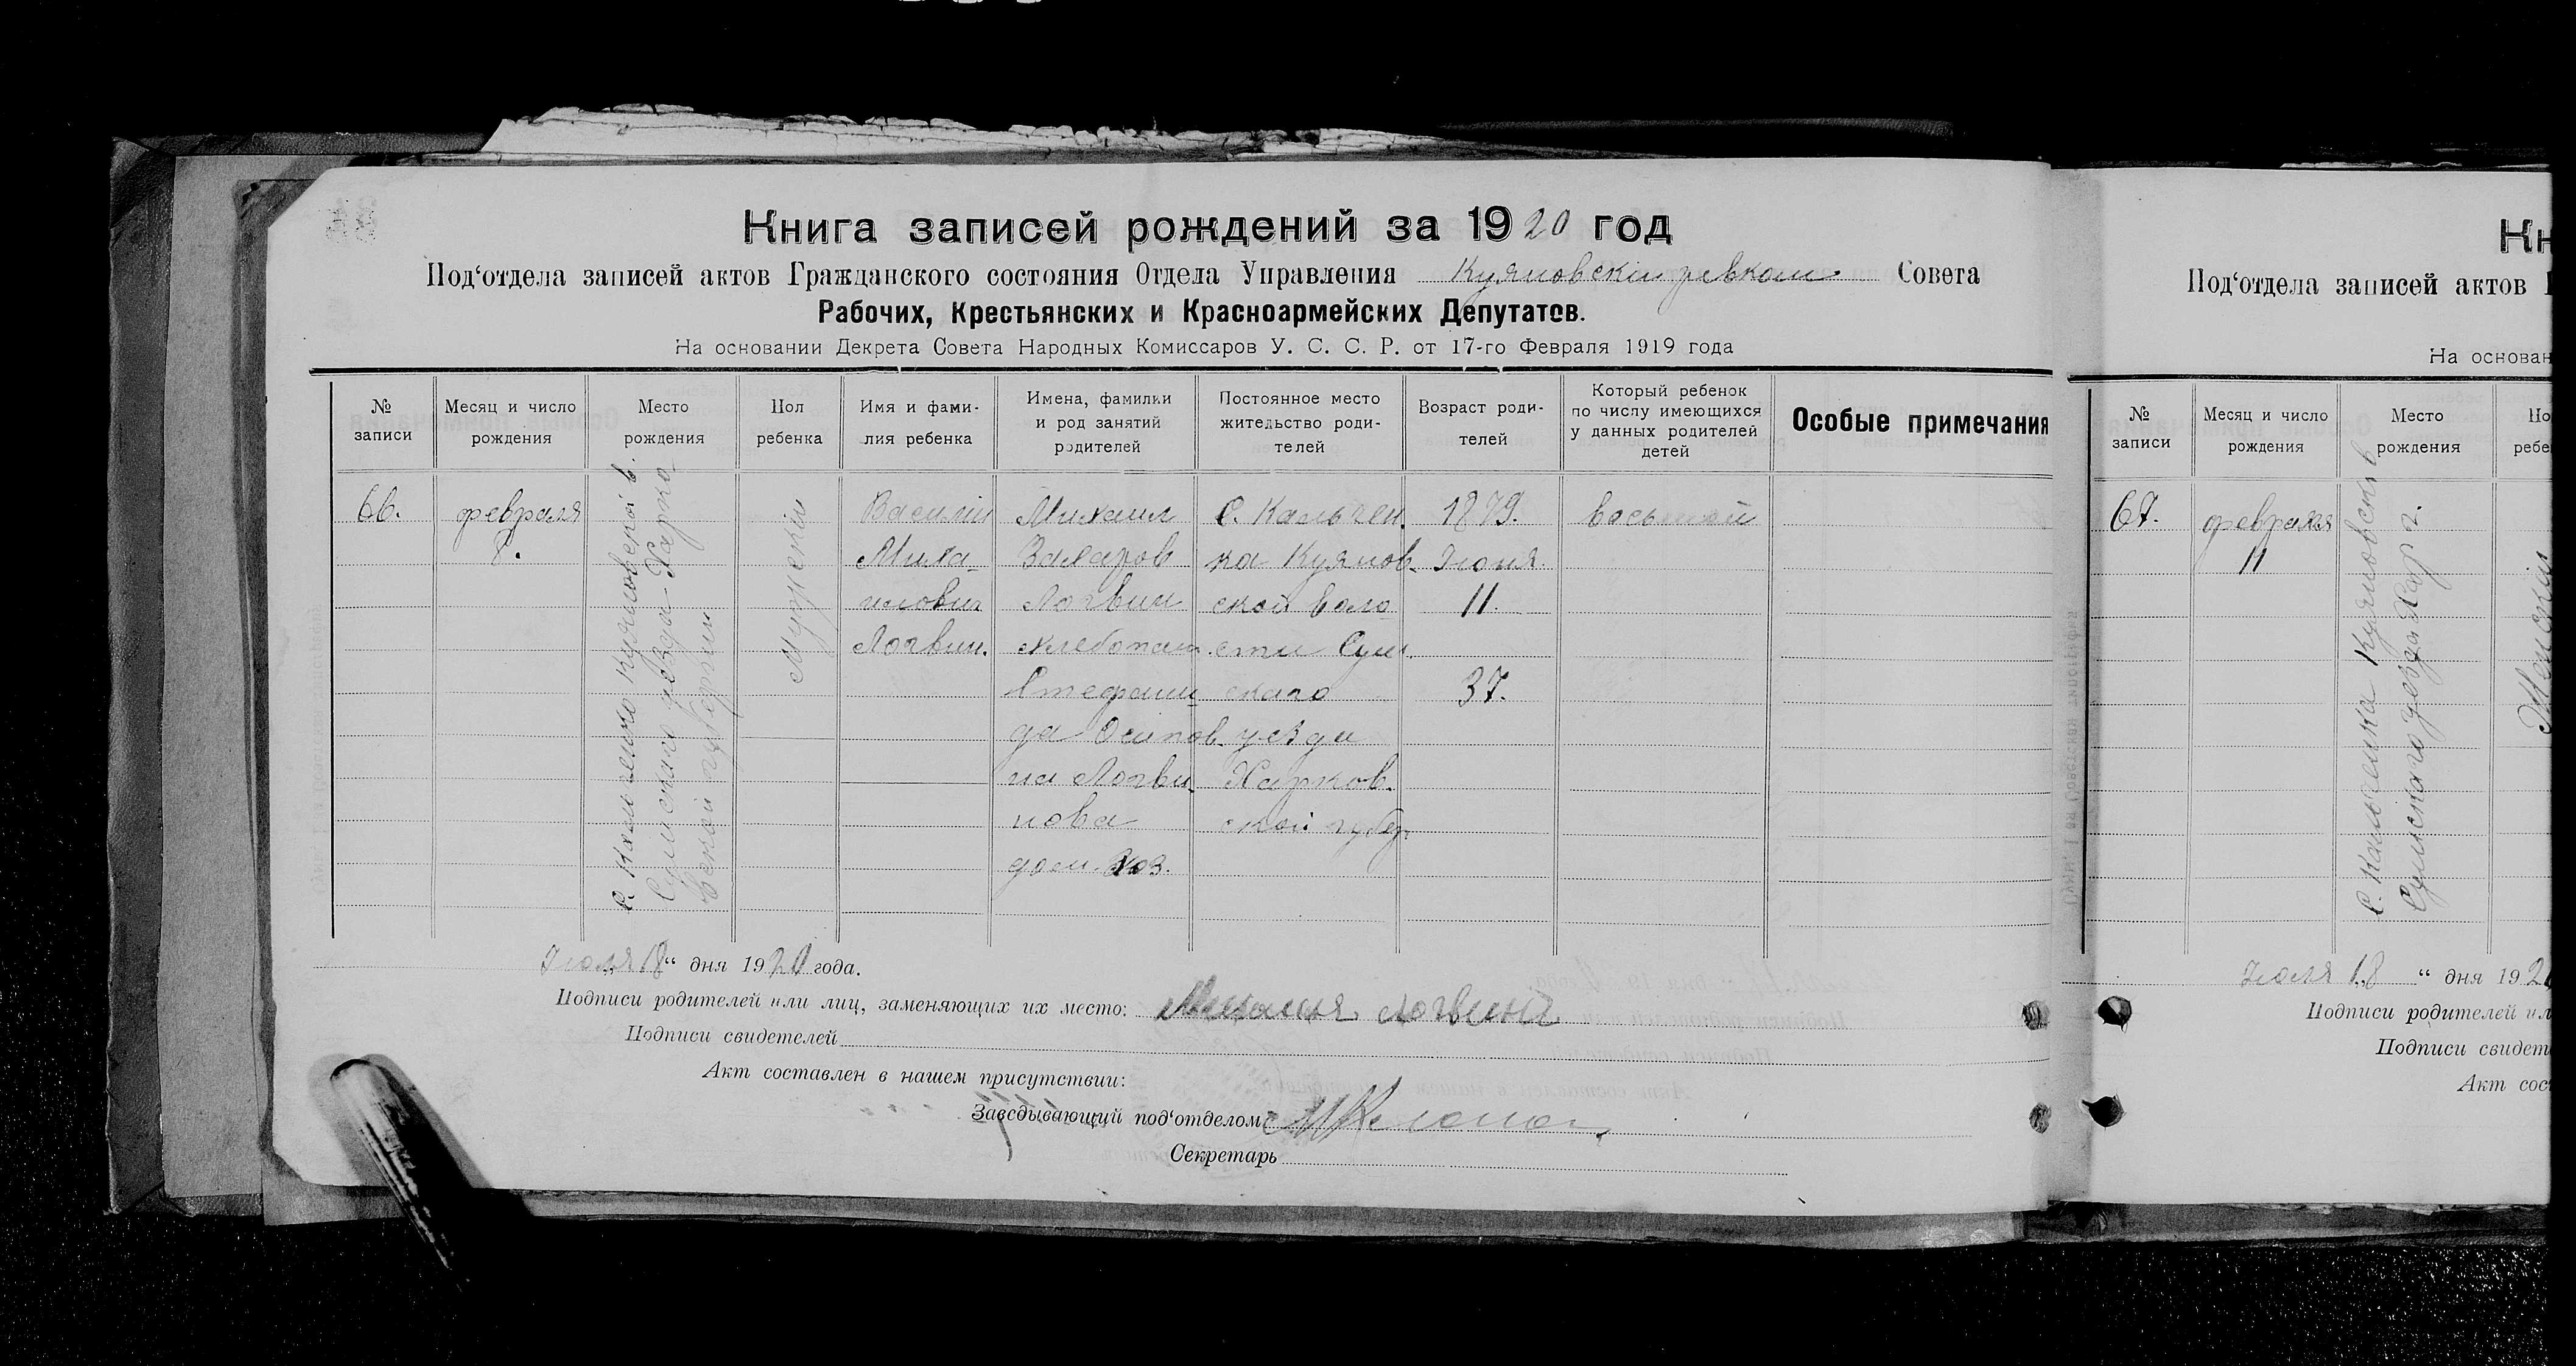 Книга записей рождений за 1920 год
Под‘отдела записей актов Гражданского состояния Отдела Управления Куяновскій ревком Совета
Рабочих, Крестьянских и Красноармейских Депутатов.
На основании Декрета Совета Народных Комиссаров У. С. С. Р. от 17-го Февраля 1919 года
№ записи
Месяц и число рождения
Место рождения
Пол ребенка
Имя и фами-
лия ребенка
Имена, фамилии
и род занятий
родителей
Постоянное место
жительство роди-
телей
Возраст роди-
телей
Который ребенок
по числу имеющихся
у данных родителей
детей
Особые примечания
66.
февраля
8.
С. Кальченко Куяновской в.
Сумскаго уезда Харько
вской губернии
Мужскій
Василій
Миха-
илович
Логвин.
Михаил
Захаров
Логвин
хлебопаш.
Стефани
да Осипов.
на Логви-
нова
дом. хоз.
С. Кальчен.
ка Куянов-
ской воло
сти Сум.
скаго
уезда
Харков.
ской губер.
1879.
Июня.
11.
37.
восьмой
Июля 18 “ дня 1920 года.
Подписи родителей или лиц, заменяющих их место: Михаилъ Логвинъ
Подписи свидетелей
Акт составлен в нашем присутствии:
Заведывающий под‘отделом
Секретарь
Кн
Под‘отдела записей актов
На основан
№ записи
Месяц и число рождения
Место рождения
По
ребе
67.
февраля
11
С. Кальченка Куяновской в
Сумскаго уезда Хар г.
Женскій
Июля 18 “ дня 192
Подписи родителей ил
Подписи свидет
Акт сос